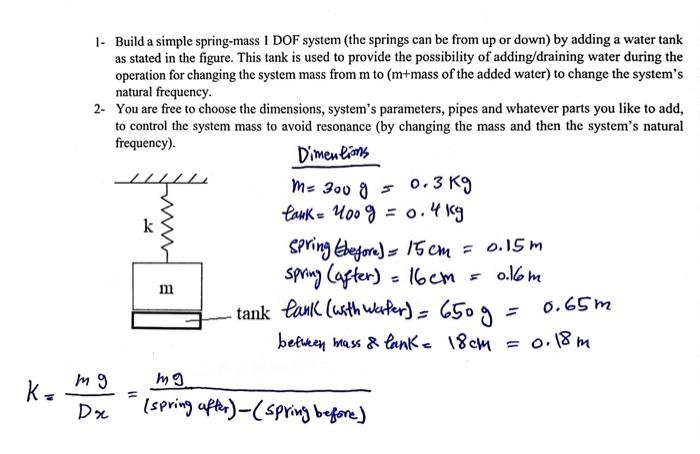 1- Build a simple spring-mass 1 DOF system (the springs can be from up or down) by adding a water tank
as stated in the figure. This tank is used to provide the possibility of adding/draining water during the
operation for changing the system mass from m to (m+mass of the added water) to change the system's
natural frequency.
2- You are free to choose the dimensions, system's parameters, pipes and whatever parts you like to add,
to control the system mass to avoid resonance (by changing the mass and then the system's natural
frequency).
Dimentions
m= 300 g = 0.3 Kg
tank = 400 g = 0.4 kg
spring (before) = 15 cm = 0.15 m
spring (after) = 16 cm = 0.16 m
k
m
tank
tank (with water) = 650 g = 0.65 m
between mass & tank = 18 cm = 0.18 m
K = mg / Dx = mg / (spring after) - (spring before)